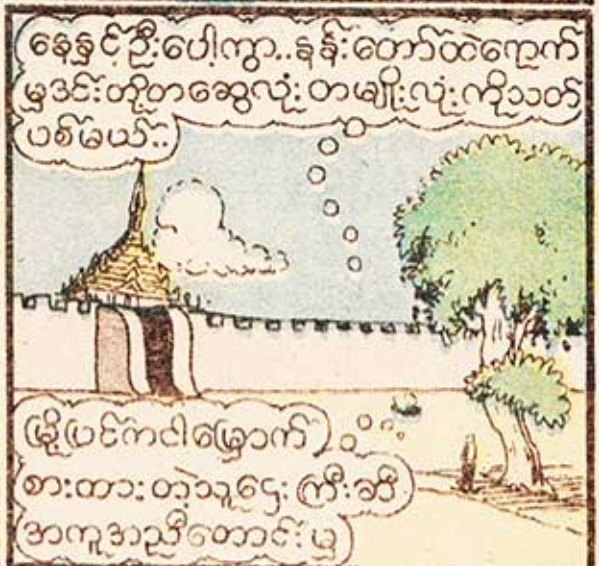 နေနှင့်ဦးပေါ့ကွာ..နန်းတော်ထဲရောက်
မှဒင်းတို့တဆွေလုံးတမျိုးလုံးကိုသတ်
ပစ်မယ်..
မြို့ပြင်ကငါခြောက်
စားထားတဲ့သူဌေးကြီးဆီ
အကူအညီတောင်းမှ